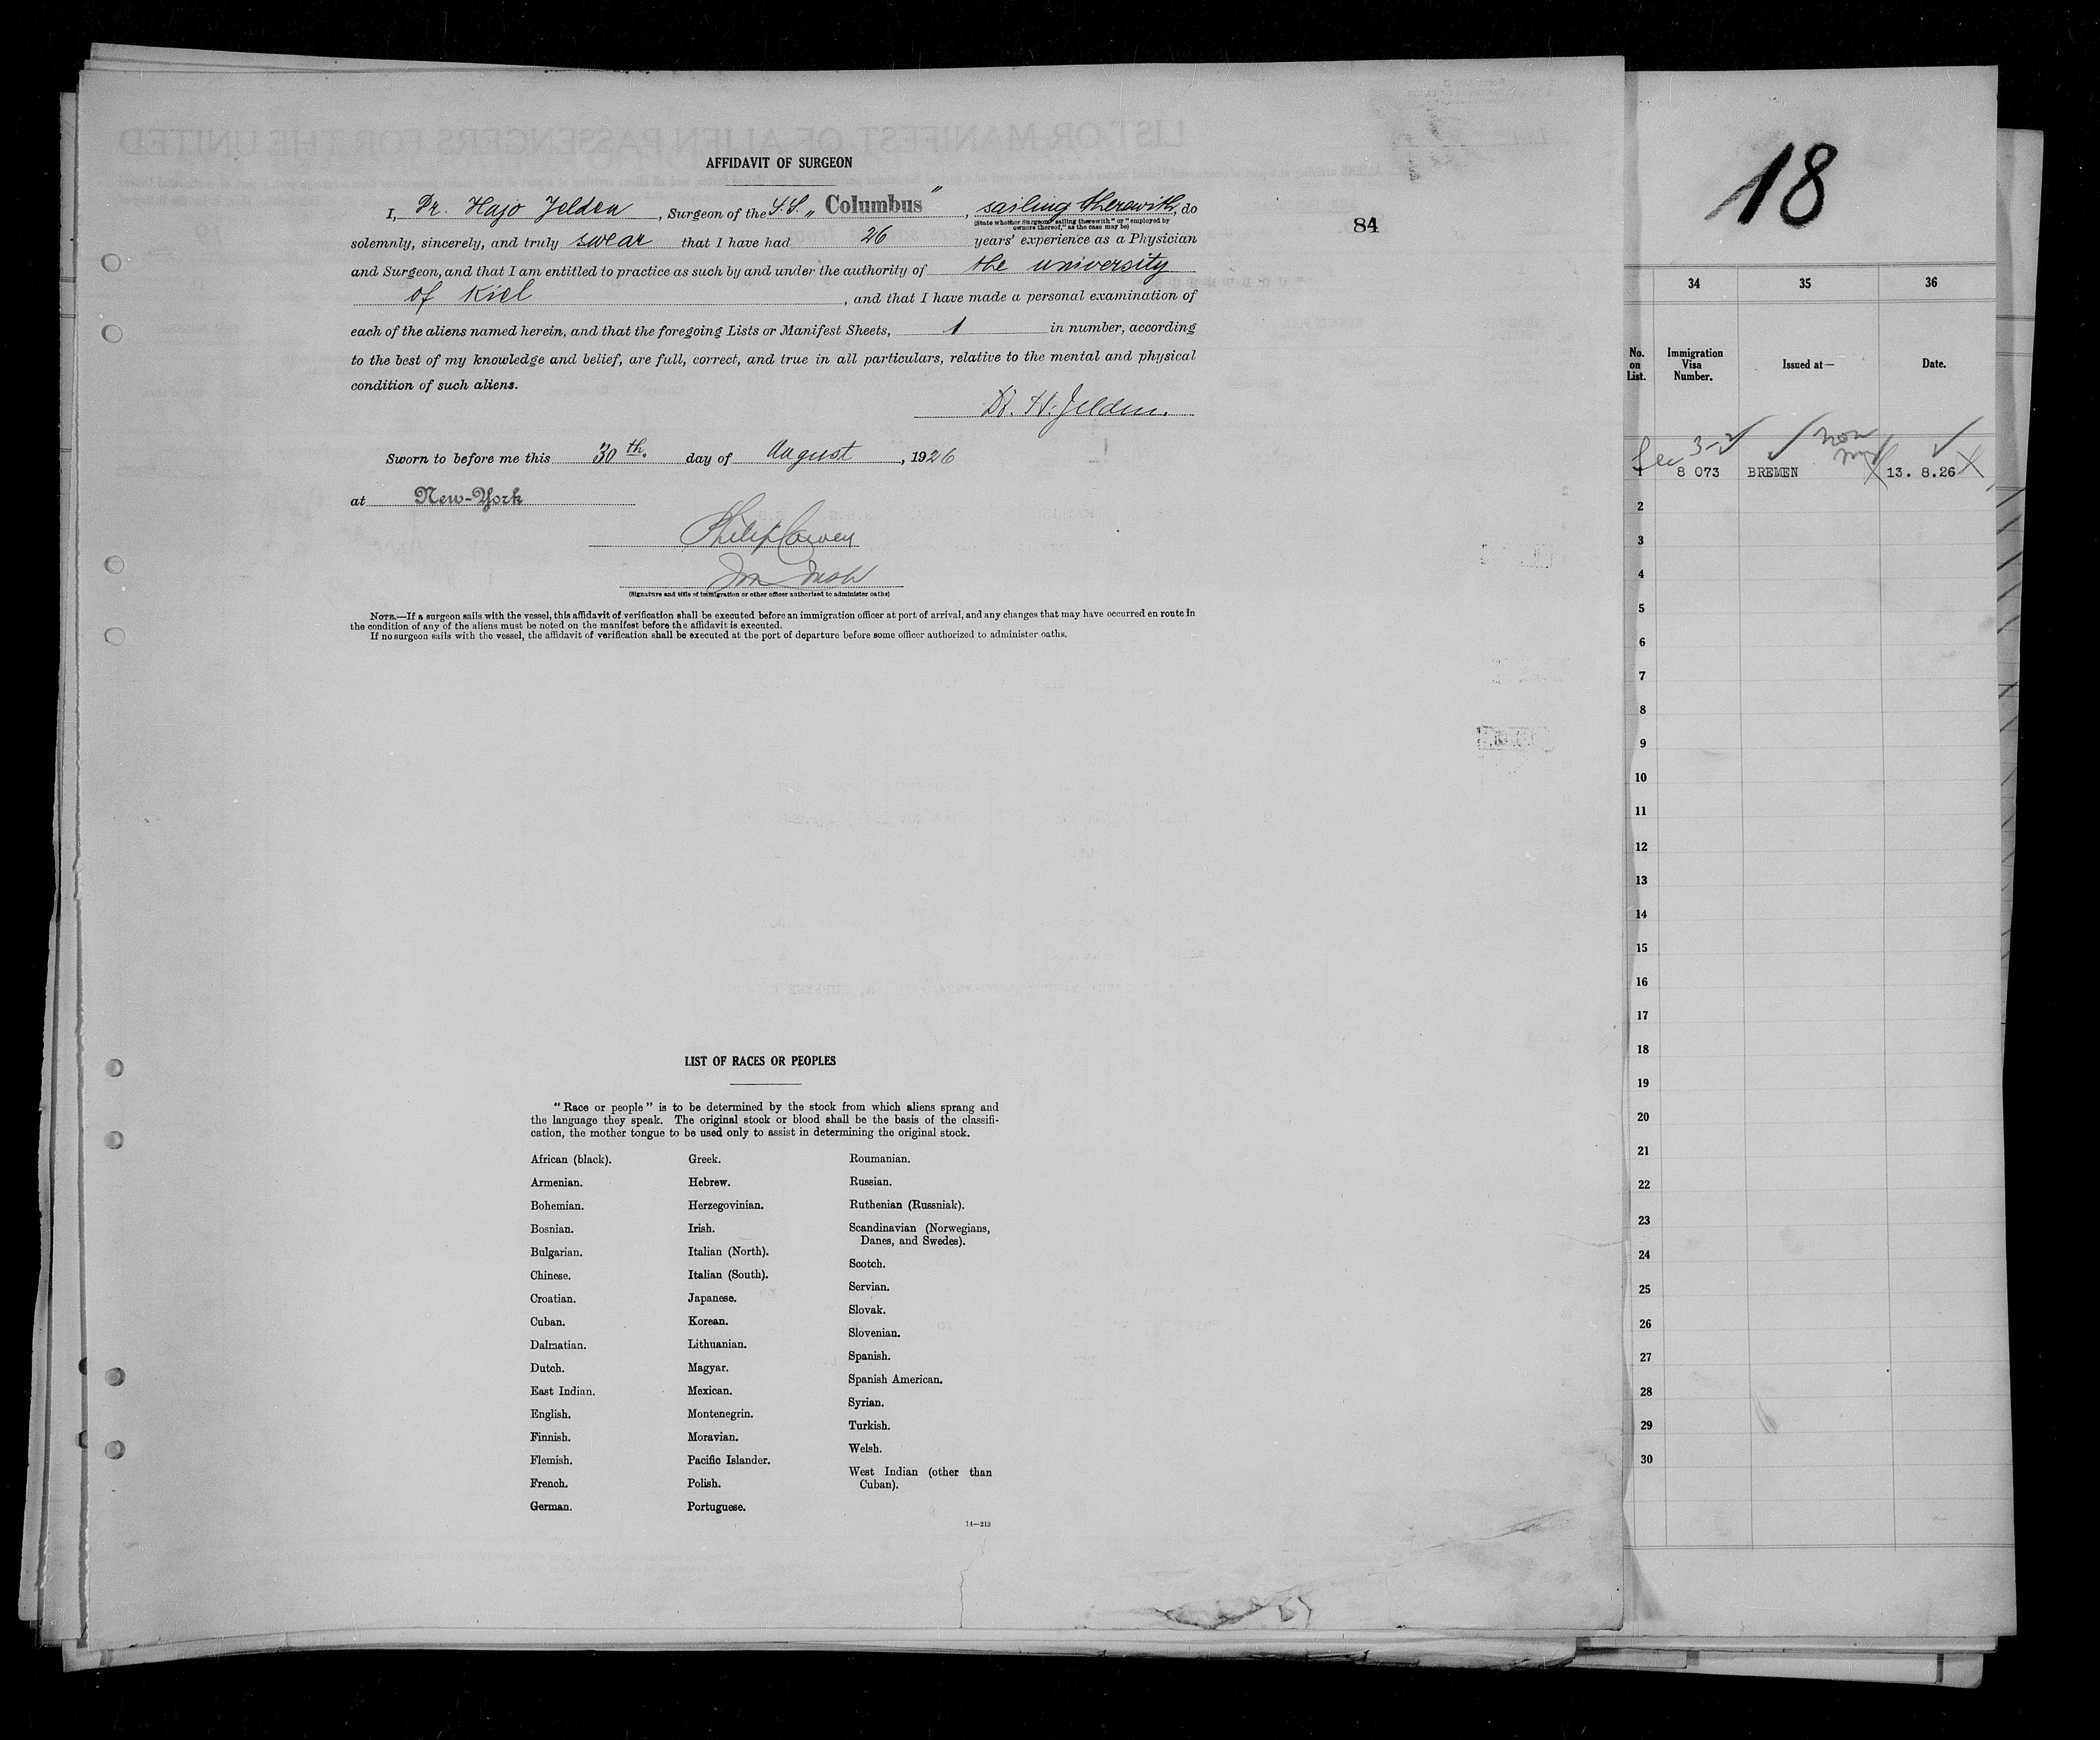 AFFIDAVIT OF SURGEON
I, Dr. Hajo Jelden, Surgeon of the S.S. „Columbus", sailing therewith, do
(State whether Surgeon "sailing therewith" or "employed by
owners thereof," as the case may be)
solemnly, sincerely, and truly swear that I have had 26 years' experience as a Physician
and Surgeon, and that I am entitled to practice as such by and under the authority of the university
of Kiel, and that I have made a personal examination of
each of the aliens named herein, and that the foregoing Lists or Manifest Sheets, 1 in number, according
to the best of my knowledge and belief, are full, correct, and true in all particulars, relative to the mental and physical
condition of such aliens.
Dr. H. Jelden.
Sworn to before me this 30th. day of August, 1926
at New-York
Philip Cowen
(Signature and title of immigration or other officer authorized to administer oaths)
NOTE.—If a surgeon sails with the vessel, this affidavit of verification shall be executed before an immigration officer at port of arrival, and any changes that may have occurred en route in
the condition of any of the aliens must be noted on the manifest before the affidavit is executed.
If no surgeon sails with the vessel, the affidavit of verification shall be executed at the port of departure before some officer authorized to administer oaths.
84
LIST OF RACES OR PEOPLES
"Race or people" is to be determined by the stock from which aliens sprang and
the language they speak. The original stock or blood shall be the basis of the classifi-
cation, the mother tongue to be used only to assist in determining the original stock.
African (black).
Armenian.
Bohemian.
Bosnian.
Bulgarian.
Chinese.
Croatian.
Cuban.
Dalmatian.
Dutch.
East Indian.
English.
Finnish.
Flemish.
French.
German.
Greek.
Hebrew.
Herzegovinian.
Irish.
Italian (North).
Italian (South).
Japanese.
Korean.
Lithuanian.
Magyar.
Mexican.
Montenegrin.
Moravian.
Pacific Islander.
Polish.
Portuguese.
Roumanian.
Russian.
Ruthenian (Russniak).
Scandinavian (Norwegians,
Danes, and Swedes).
Scotch.
Servian.
Slovak.
Slovenian.
Spanish.
Spanish American.
Syrian.
Turkish.
Welsh.
West Indian (other than
Cuban).
14—213
18
34 35 36
No.
on
List.
Immigration
Visa
Number.
Issued at—
Date.
Sec 3-2
1 8 073 BREMEN 13. 8.26
2
3
4
5
6
7
8
9
10
11
12
13
14
15
16
17
18
19
20
21
22
23
24
25
26
27
28
29
30